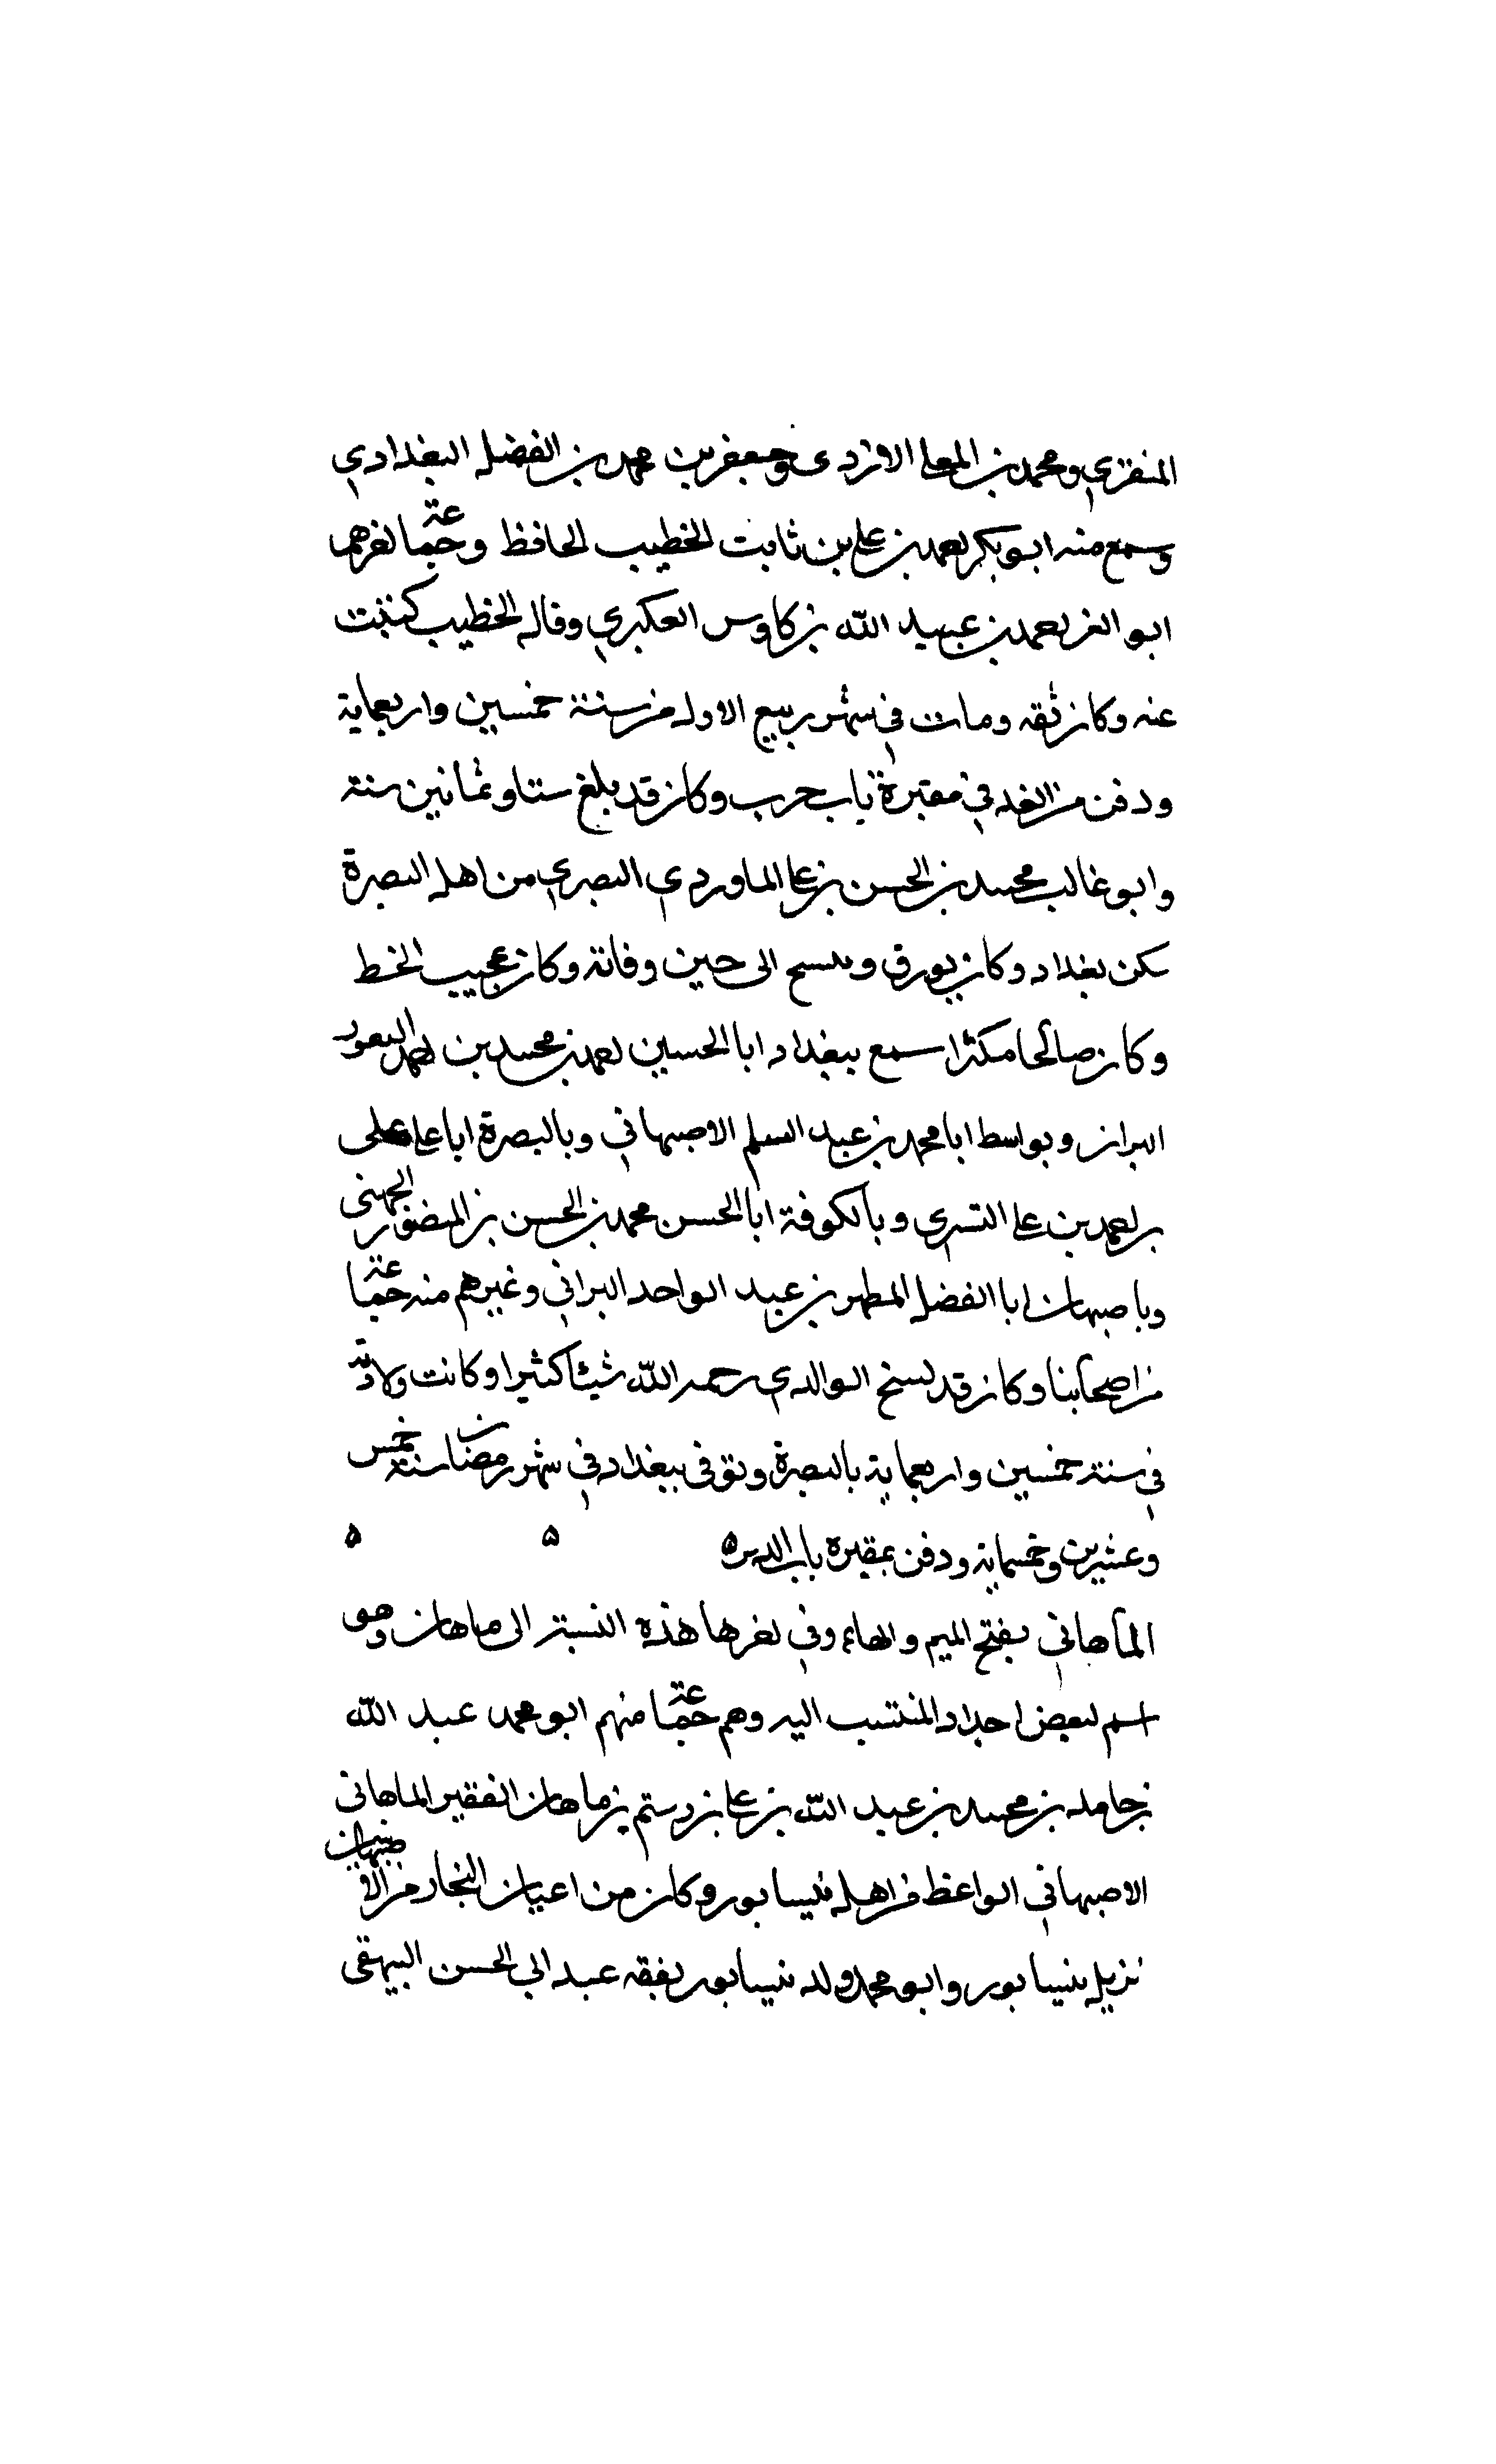 المنقري ومحمد بن المعلى الازدي وجعفر بن محمد بن الفضل البغدادي
وسمع منه ابو بكر احمد بن علي بن ثابت الخطيب الحافظ وجماعة اخرهم
ابو العز احمد بن عبيد الله بن كاوس العكبري وقال الخطيب كتبت
عنه وكان ثقه ومات في شهر ربيع الاول من سنة خمسين واربعماية
ودفن من الغد في مقبرة باب حرب وكان قد بلغ ستا وثمانين سنة
وابو غالب محمد بن الحسن بن علي الماوردي البصري من اهل البصرة
سكن بغداد وكان يورق وينسخ الى حين وفاته وكان عجيب الخط
وكان صالحا مكثرا سمع ببغداد ابا الحسين احمد بن محمد بن احمد النقور
البزاز وبواسط ابا محمد بن عبد السلم الاصبهاني وبالبصرة ابا علي علي
بن احمد بن علي التستري وبالكوفة ابا الحسن محمد بن الحسن بن المنثور الجهني
وباصبهان ابا الفضل المطهر بن عبد الواحد البزاني وغيرهم منه جماعة
من اصحابنا وكان قد نسخ لوالدي رحمه الله شيئا كثيرا وكانت ولادته
في سنة خمسين واربعماية بالبصرة وتوفى ببغداد في شهر رمضان سنة خمس
وعشرين وخمسماية ودفن بمقبرة باب الدير ه ه ه
الماهاني بفتح الميم والهاء وفي اخرها هذه النسبة الى ماهان وهو
اسم لبعض اجداد المنتسب اليه وهم جماعة منهم ابو محمد عبد الله
بن حامد بن محمد بن عبد الله بن علي بن رستم بن ماهان الفقيه الماهانى
الاصبهاني الواعظ من اهل نيسابور وكان من اعيان التجار من الاصبهان
نزيل نيسابور وابو محمد ولد بنيسابور تفقه عند ابي الحسن البيهقى